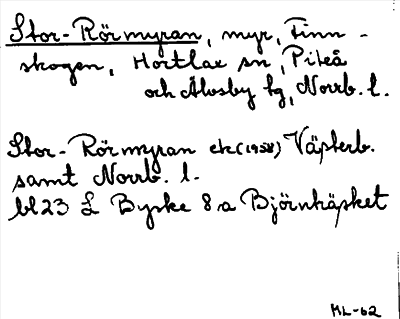 Stor-Rörmyran, myr, Finn-
skogen, Hortlax sn, Piteå
och Älvsby tg, Norrb. l.
Stor-Rörmyran ek (1958) Västerb.
samt Norrb. l.
bl 23 L Byske 8 a Björnhäsket
ML-62